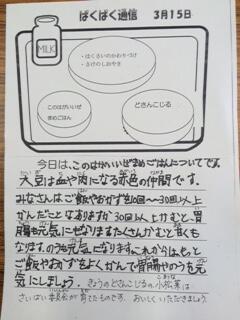 ぱくぱく通信　3月15日
MILK
・はくさいのかわりづけ
・さけのしおやき
このはがいいぜ
まめごはん
どさんこじる
今日は、このはがいいぜまめごはんについてです。
大豆は血や肉になる赤色の仲間です。
みなさんはご飯やおかずを10回〜30回以上
かんだことはありますか30回以上かむと、胃
腸も元気になりまたたくさんかむと甘くも
なります。のうも元気になります。これからはもっと
ご飯やおかずをよくかんで胃腸やのうを元
気にしましょう。
きょうのどさんこじるの小松菜は
さいばい委員会が育てたものです。おいしくいただきましょう。